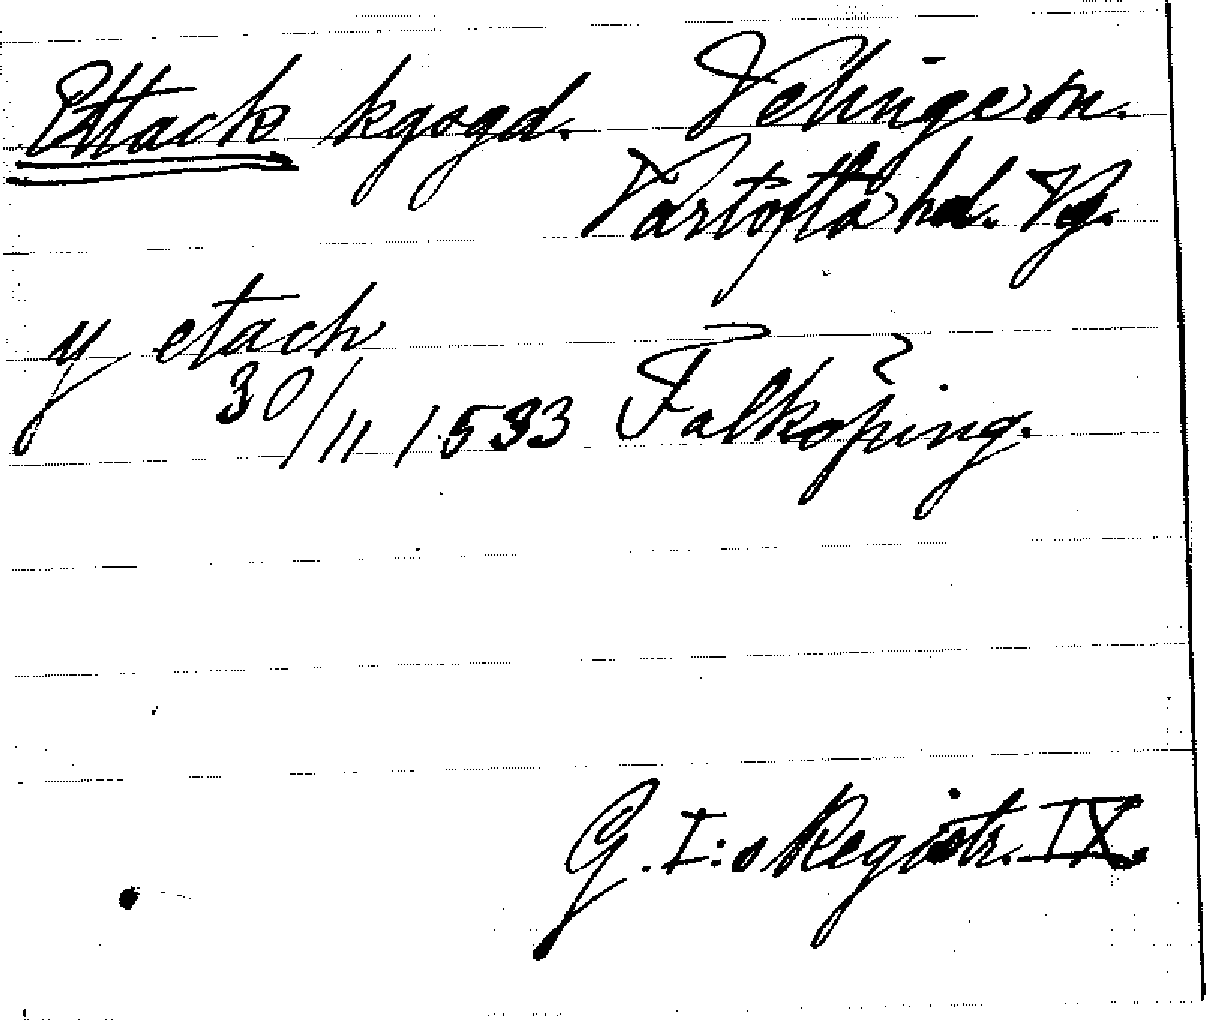 Ettack kgsgd. Velinge sn.
Vartofta hd. Vg.
y etach
30/11 1533 Falköping.
G. I:s Registr. IX.